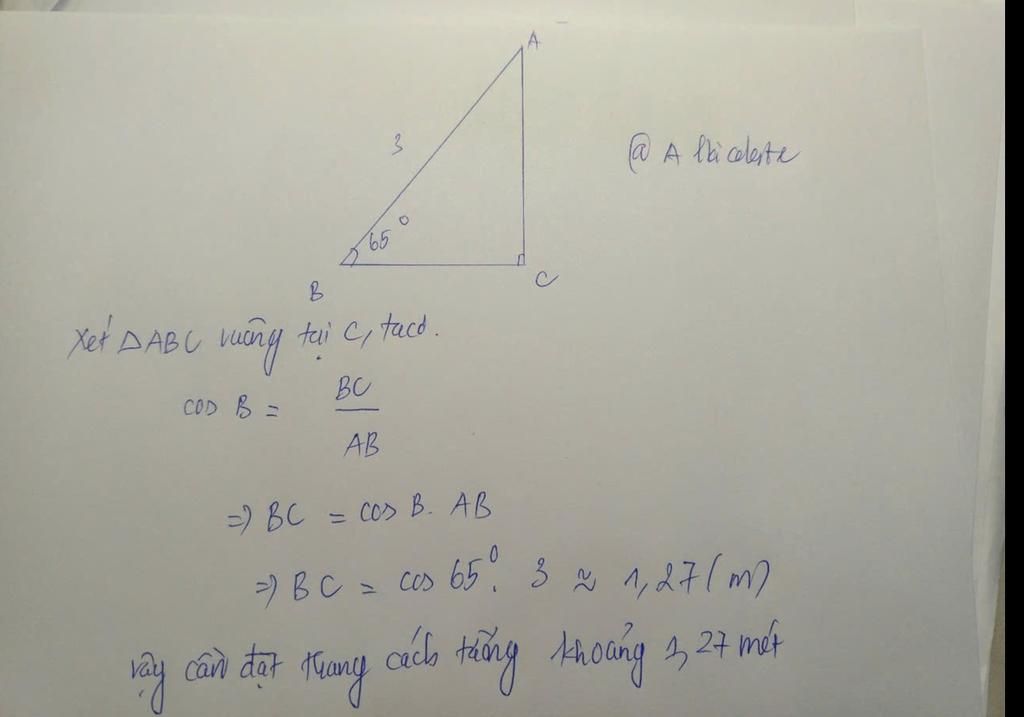 A
3
65°
B
C
@ A
Xét ΔABC vuông tại C, ta có.
cos B = BC
AB
=) BC = cos B. AB
=) BC = cos 65°. 3 ≈ 1,27 (m)
vậy cần đặt thang cách tường khoảng 1,27 mét